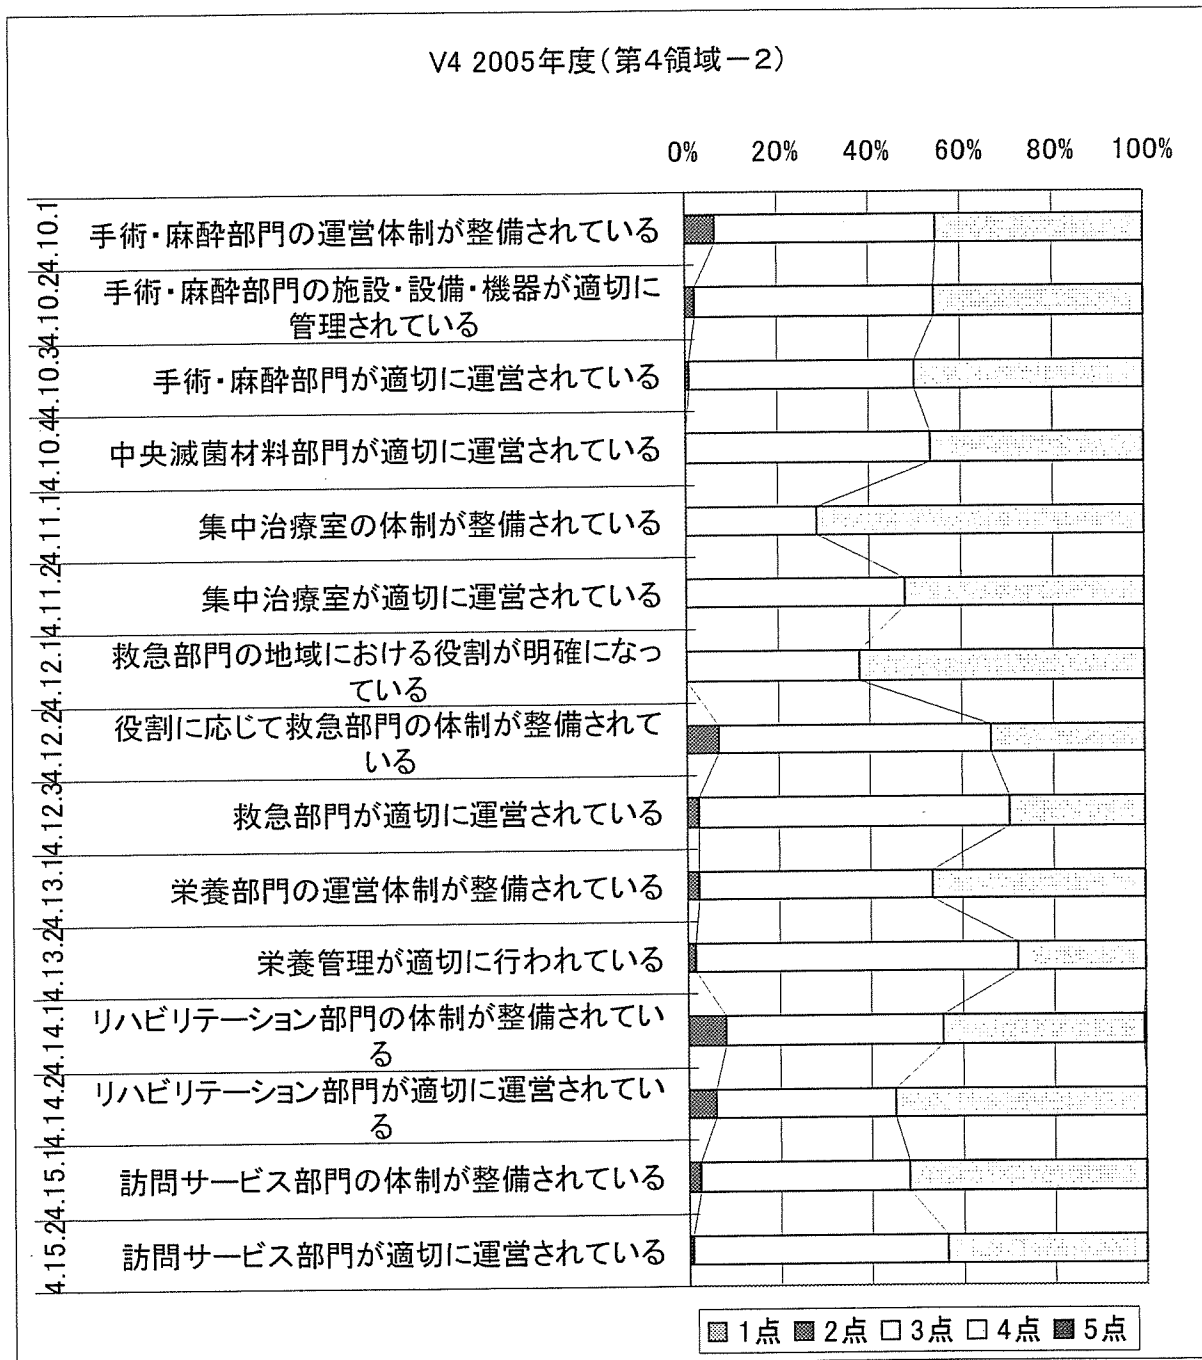 V4 2005年度(第4領域-2)
0% 20% 40% 60% 80% 100%
4.10.1 手術・麻酔部門の運営体制が整備されている
4.10.2 手術・麻酔部門の施設・設備・機器が適切に
管理されている
4.10.3 手術・麻酔部門が適切に運営されている
4.10.4 中央滅菌材料部門が適切に運営されている
4.11.1 集中治療室の体制が整備されている
4.11.2 集中治療室が適切に運営されている
4.12.1 救急部門の地域における役割が明確になっ
ている
4.12.2 役割に応じて救急部門の体制が整備されて
いる
4.12.3 救急部門が適切に運営されている
4.13.1 栄養部門の運営体制が整備されている
4.13.2 栄養管理が適切に行われている
4.14.1 リハビリテーション部門の体制が整備されてい
る
4.14.2 リハビリテーション部門が適切に運営されてい
る
4.15.1 訪問サービス部門の体制が整備されている
4.15.2 訪問サービス部門が適切に運営されている
1点 2点 3点 4点 5点